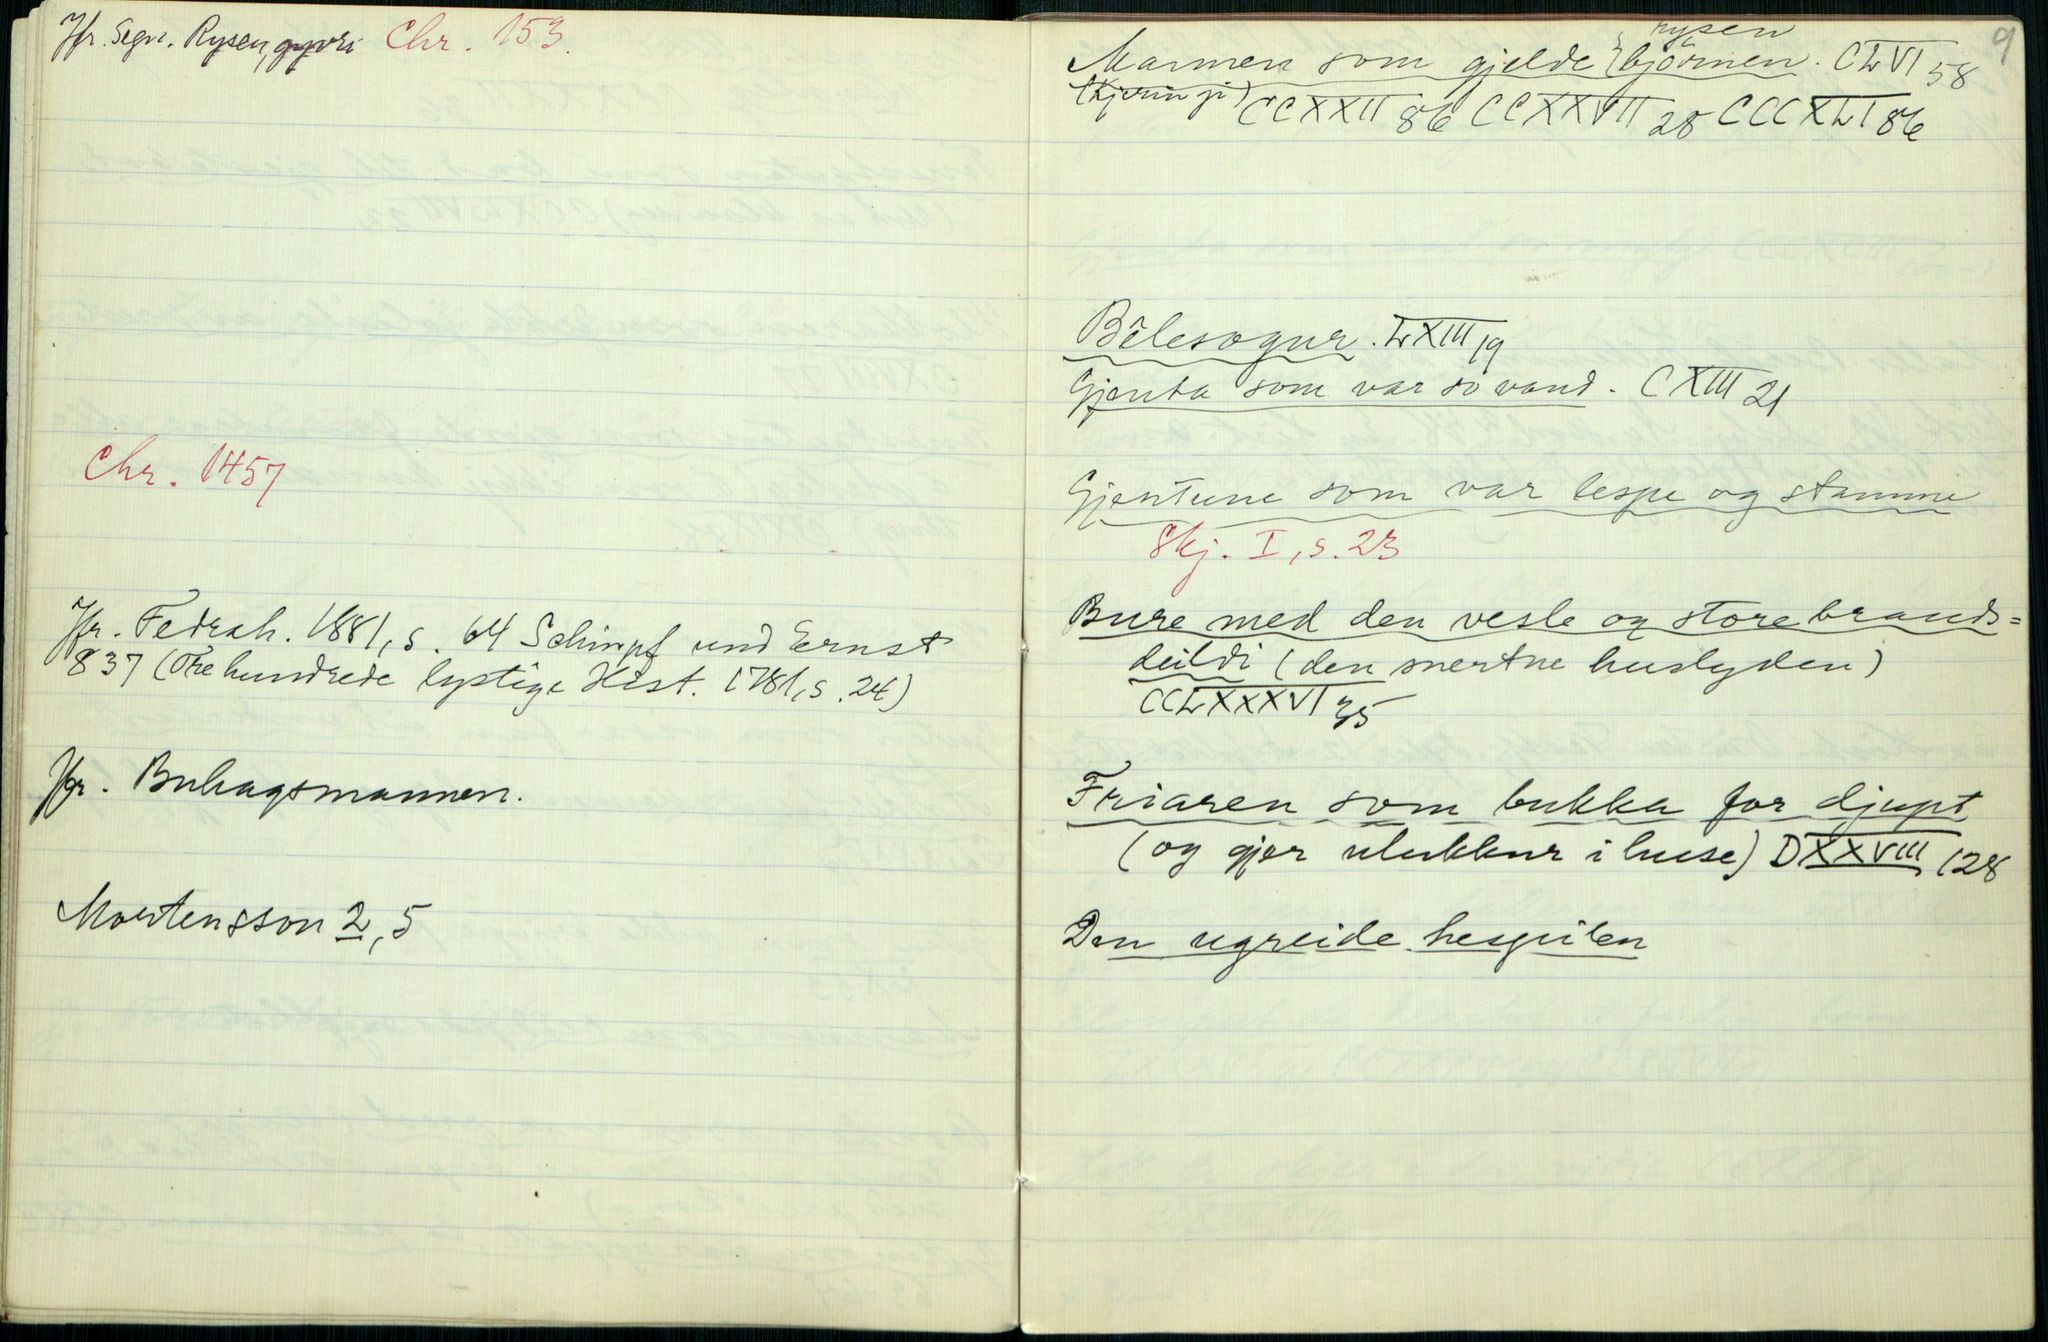 Jfr. Segn. Rysen, gyvri Chr. 153.
Chr. 1457
Jfr. Fedrah. 1881, s. 64 Schimpf und Ernst
837 (Tre hundrede lystige Hist. 1781, s. 24)
Jfr. Buhagsmannen.
Mortensson 2, 5
9
rysen
Mannen som gjelde bjørnen. CLVI 58
(kjerin ji) CCXXII 86 CCXXVII 28 CCCXLI 86
Bêlesogur. LXIII 19
Gjenta som var so vand. CXIII 21
Gjentune som var lespe og stamme
Skj. I, s. 23
Bure med den vesle og store brands=
deildi (den snertne huslyden)
CCLXXXVI 35
Friaren som bukka for djupt
(og gjer ulukkur i huse) DXXVIII 128
Den ugreide hespilen